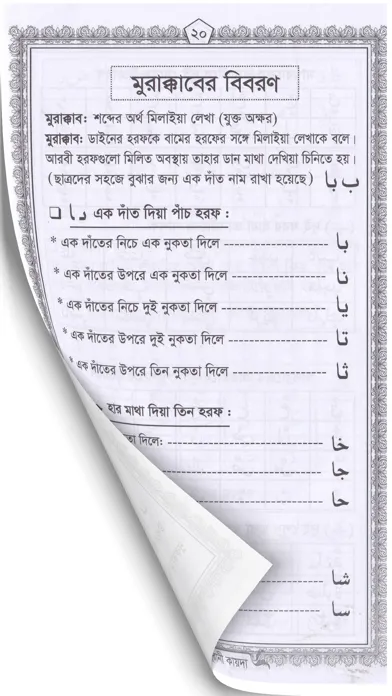 ২০
মুরাক্কাবের বিবরণ
মুরাক্কাব: শব্দের অর্থ মিলাইয়া লেখা (যুক্ত অক্ষর)
মুরাক্কাব: ডাইনের হরফকে বামের হরফের সঙ্গে মিলাইয়া লেখাকে বলে।
আরবী হরফগুলো মিলিত অবস্থায় তাহার ডান মাথা দেখিয়া চিনিতে হয়।
(ছাত্রদের সহজে বুঝার জন্য এক দাঁত নাম রাখা হয়েছে) ب با
❑ এক দাঁত দিয়া পাঁচ হরফ :
* এক দাঁতের নিচে এক নুকতা দিলে ---------------- با
* এক দাঁতের উপরে এক নুকতা দিলে ---------------- نا
* এক দাঁতের নিচে দুই নুকতা দিলে ---------------- يا
* এক দাঁতের উপরে দুই নুকতা দিলে ---------------- تا
* এক দাঁতের উপরে তিন নুকতা দিলে ---------------- ثا
হার মাথা দিয়া তিন হরফ :
দিলে: ---------------- خا
---------------- جا
---------------- حا
---------------- شا
---------------- سا
কায়দা